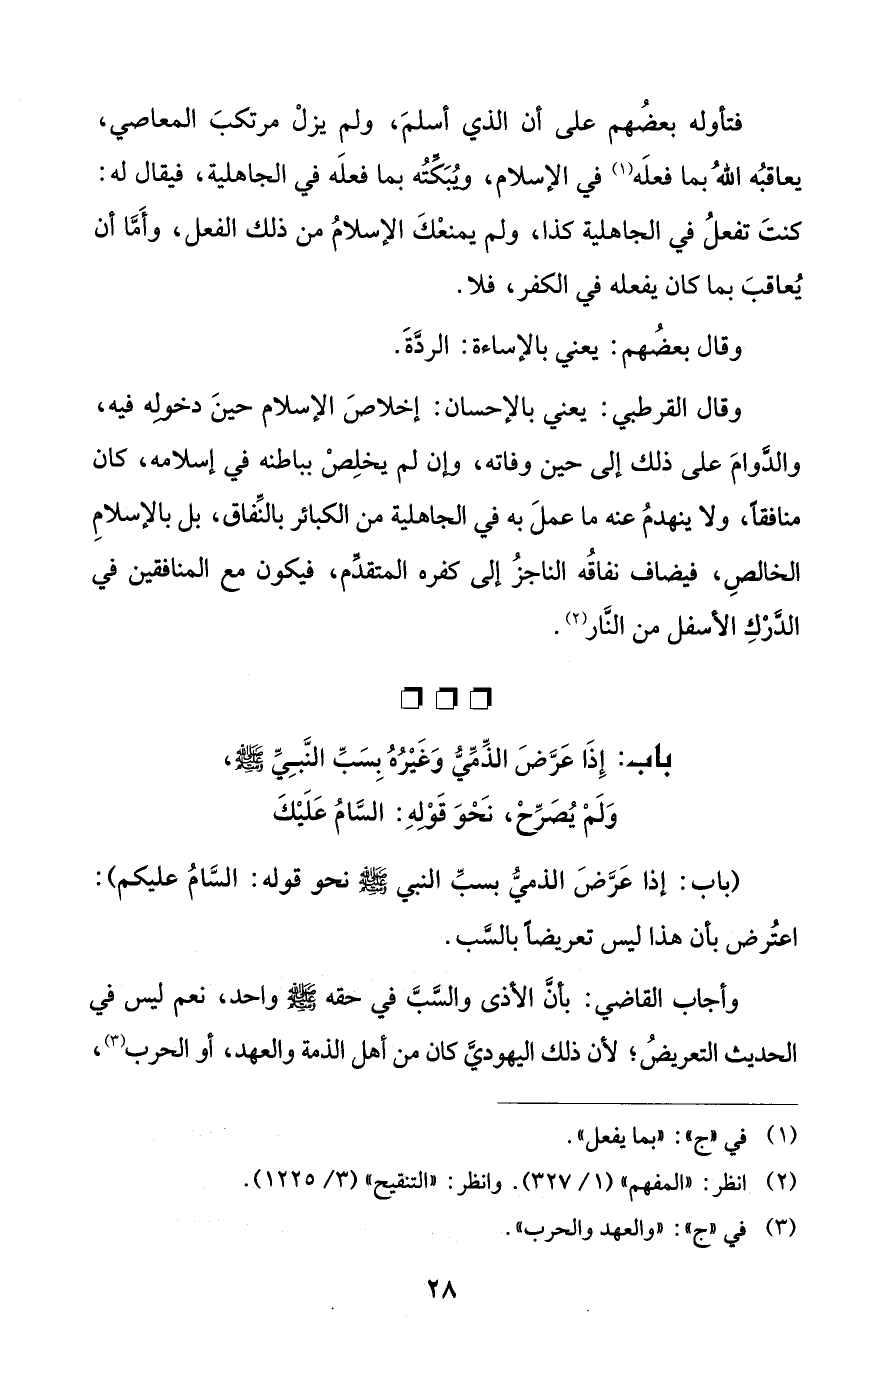 فتأوله بعضُهم على أن الذي أسلمَ، ولم يزلْ مرتكبَ المعاصي،
يعاقبُه اللهُ بما فعلَه(١) في الإسلام، ويُبَكِّتُه بما فعلَه في الجاهلية، فيقال له:
كنتَ تفعلُ في الجاهلية كذا، ولم يمنعْكَ الإسلامُ من ذلك الفعل، وأَمَّا أن
يُعاقبَ بما كان يفعله في الكفر، فلا.
وقال بعضُهم: يعني بالإساءة: الردَّةَ.
وقال القرطبي: يعني بالإحسان: إخلاصَ الإسلام حينَ دخولِه فيه،
والدَّوامَ على ذلك إلى حين وفاته، وإن لم يخلِصْ بباطنه في إسلامه، كان
منافقاً، ولا ينهدمُ عنه ما عملَ به في الجاهلية من الكبائر بالنِّفاق، بل بالإسلامِ
الخالصِ، فيضاف نفاقُه الناجزُ إلى كفره المتقدِّم، فيكون مع المنافقين في
الدَّرْكِ الأسفل من النَّار(٢).
باب: إِذَا عَرَّضَ الذِّمِّيُّ وَغَيْرُهُ بِسَبِّ النَّبِيِّ ﷺ،
وَلَمْ يُصَرِّحْ، نَحْوَ قَوْلِهِ: السَّامُ عَلَيْكَ
(باب: إذا عَرَّضَ الذميُّ بسبِّ النبي ﷺ نحو قوله: السَّامُ عليكم):
اعتُرض بأن هذا ليس تعريضاً بالسَّب.
وأجاب القاضي: بأنَّ الأذى والسَّبَّ في حقه ﷺ واحد، نعم ليس في
الحديث التعريضُ؛ لأن ذلك اليهوديَّ كان من أهل الذمة والعهد، أو الحرب(٣)،
(١) في «ج»: «بما يفعل».
(٢) انظر: «المفهم» (١/ ٣٢٧). وانظر: «التنقيح» (٣/ ١٢٢٥).
(٣) في «ج»: «والعهد والحرب».
٢٨